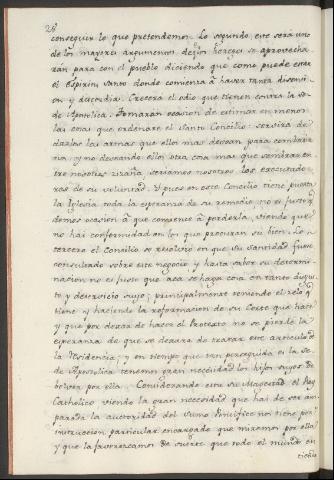 28
conseguir lo que pretendemos. Lo segundo, este será uno
de los mayores argumentos de los hereges se aprovecha
rán para con el pueblo diciendo que como puede estar
el Espiritu Santo donde comienza á haver tanta disensi
on y discordia. Crecera el odio que tienen contra la Se
de Apostolica. Tomaran ocasion de estimar en menos
las cosas que ordenare el Santo Concilio. Servira de
darlos las armas que ellos mas desean para combatir
nos, y no deseando ellos otra cosa mas que sembrar en
tre nosotros zizaña, seriamos nosotros los executado
res de su voluntad. Y pues en este Concilio tiene puesta
la Iglesia toda la esperanza de su remedio, no es justo q
demos ocasion á que comience á perderla, viendo que
no hai conformidad en los que procuran su bien. Lo
tercero el Concilio se resolvió en que Su Santidad fuese
consultado sobre este negocio y hasta saber su determi
nacion no es justo que acá se haga cosa en tanto disgus
to y deservicio suyo; principalmente teniendo el zelo q
tiene y haciendo la reformacion de su Corte que hace
y que por dexar de hacer el Protexto no se pierde la
esperanza de que se dexara de tratar este articulo de
la Residencia; y en tiempo que tan perseguida es la Se
de Apostolica tenemos gran necesidad los hijos suyos de
bolver por ella. Considerando esto su Magestad el Rey
Catholico viendo la gran necesidad que hai de ser am
parada la autoridad del Sumo Pontifice nos tiene por
instruccion particular encargado que miremos por ella
y que la favorezcamos de suerte que todo el mundo en